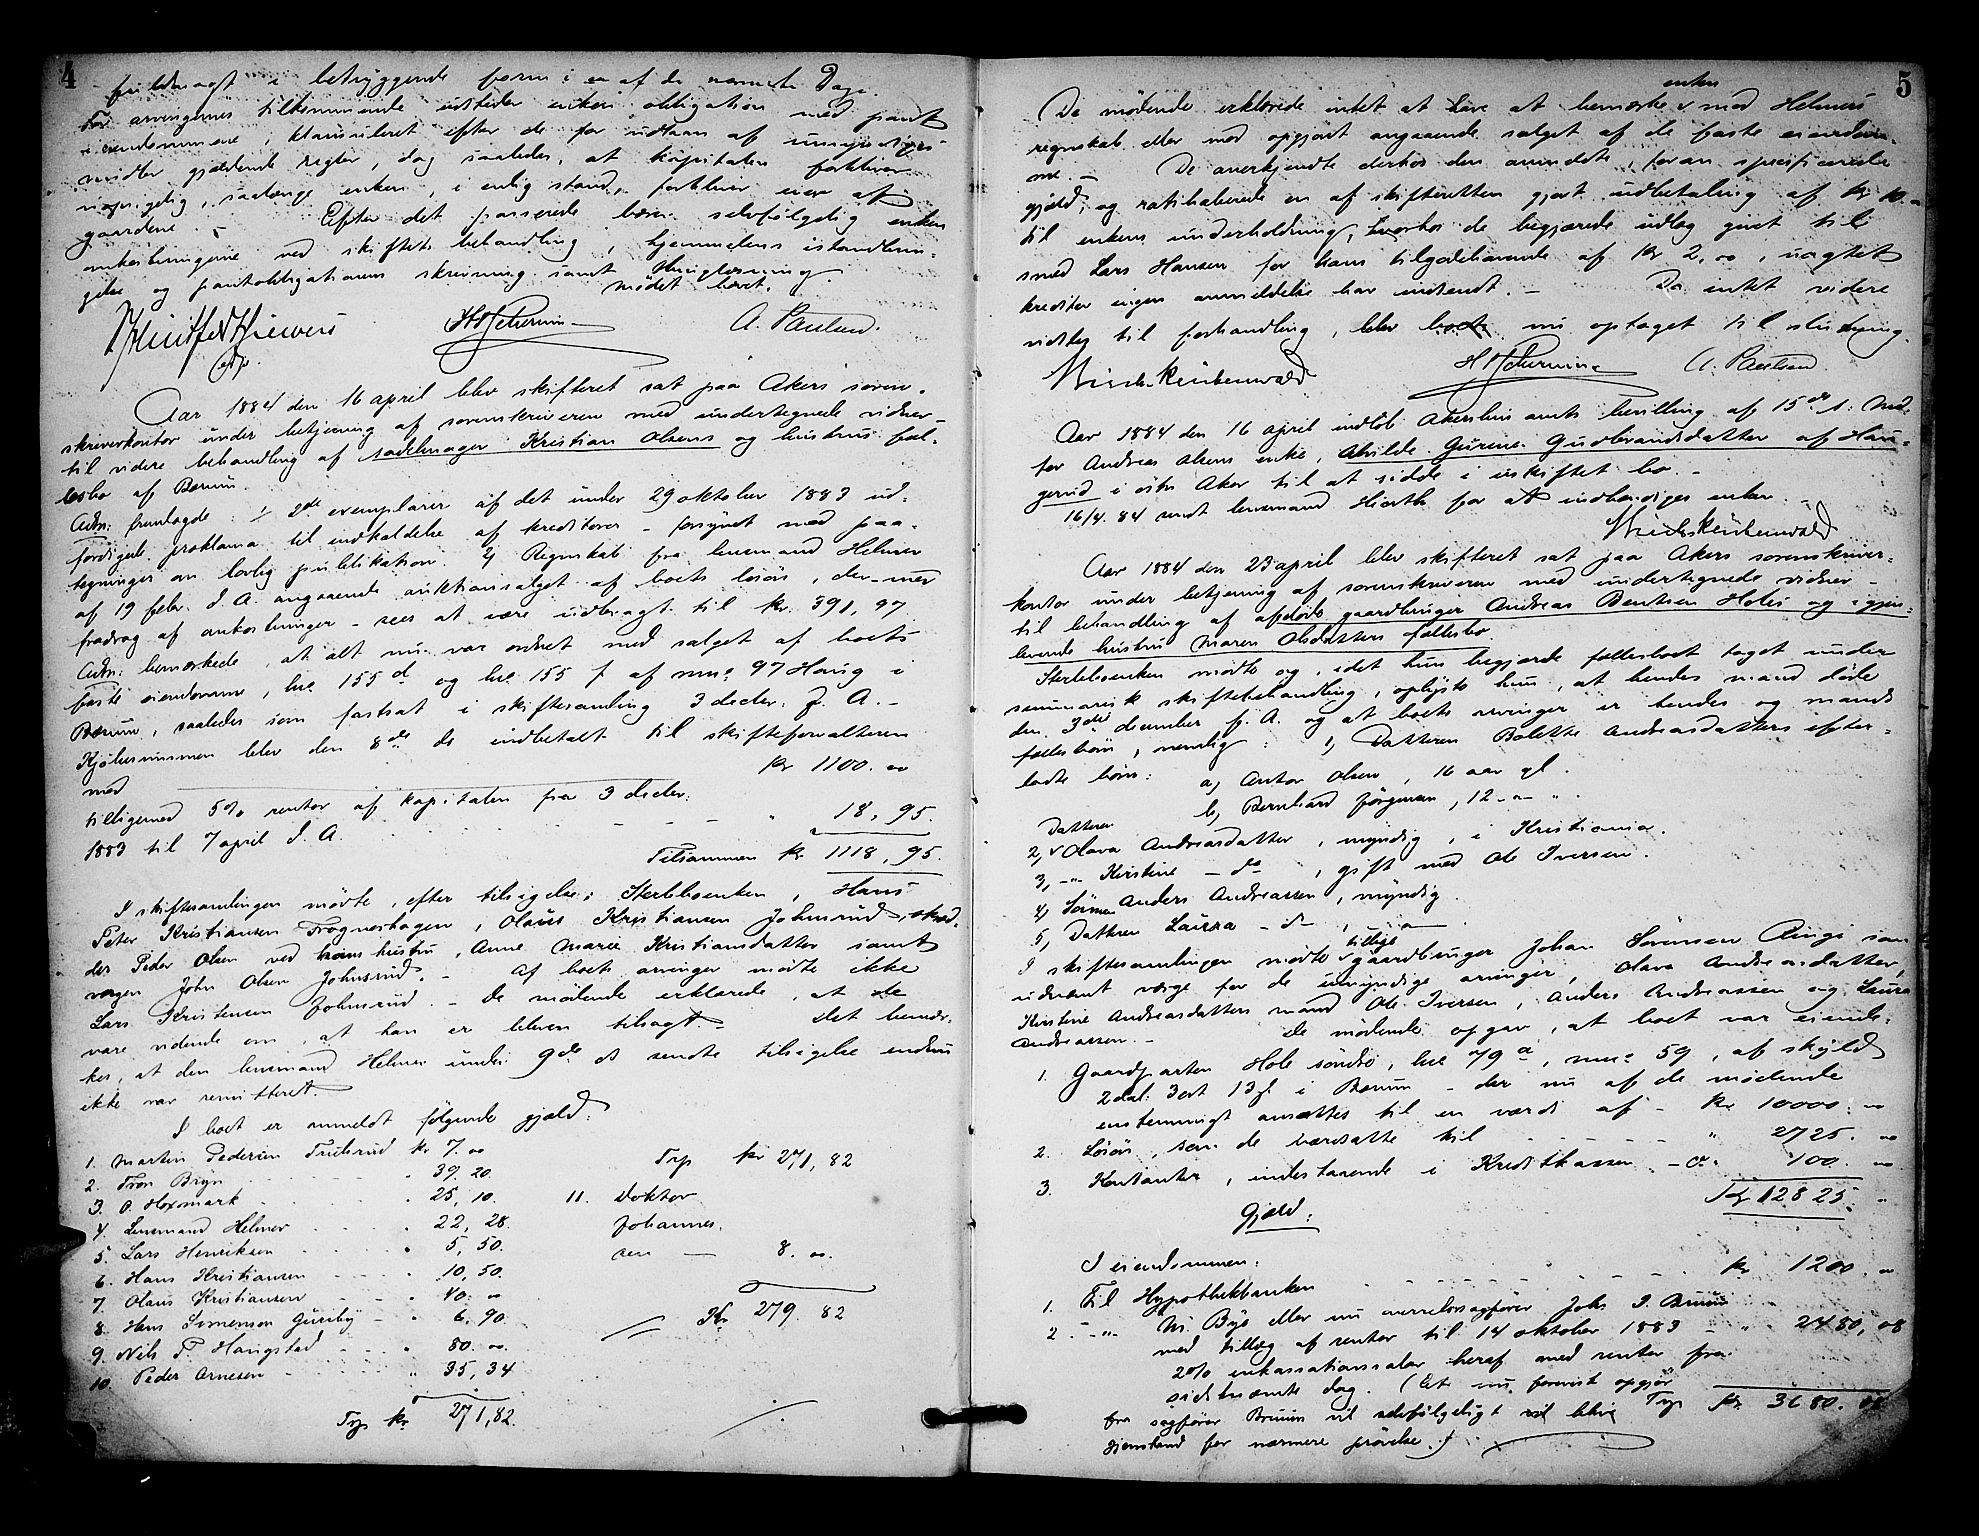 4
fuldbragt i betryggende form i en af de nærmeste Dage.
For arvingernes tilkommende udsteder enken obligation med pant
i eiendommene, klausuleret efter de for udlaan af umyndiges
midler gjældende regler, dog saaledes, at kapitalen forbliver
uopsigelig, saalænge enken, i enlig stand, forbliver eier af
gaardene. - Efter det passerede bærer selvfølgelig enken
omkostningerne ved skiftets behandling, hjemmelens istandbrin-
gelse og pantobligationens skrivning samt thinglæsning.
mødet hævet.
A. Paulsen.
Aar 1884 den 16 april blev skifteret sat paa Akers soren-
skriverkontor under betjening af sorenskriveren med undertegnede vidner
til videre behandling af sadelmager Kristian Olsens og hustrus fæl-
lesbo af Bærum.
Adm: fremlagde: 1/ 2de exemplarer af det under 29 oktober 1883 ud-
færdigede proklama til indkaldelse af kreditorer - forsynet med paa-
tegninger om lovlig publikation. 2/ Regnskab fra lensmand Helmer
af 19 febr. d. A. angaaende auktionsalget af boets løsøre, der - med
fradrag af omkostninger - sees at være udbragt til kr. 391,97.
Adm: bemærkede, at alt nu var ordnet med salget af boets
faste eiendomme, lne 155 d og lne 155 f af mno 97 Haug i
Bærum, saaledes som fastsat i skiftesamling 3 decbr. f. A. -
Kjøbesummen blev den 8de ds indbetalt til skifteforvalteren
med kr 1100. 00
tilligemed 5% renter af kapitalen fra 3 decbr.
1883 til 7 april d. A. - - - " 18,95.
Tilsammen kr. 1118,95.
I skiftesamlingen mødte, efter tilsigelse: Sterbboenken, Hans
Peter Kristiansen Frognerhagen, Olaus Kristiansen Johnsrud, skræd-
der Peder Olsen ved hans hustru, Anne Marie Kristiansdatter samt
vergen John Olsen Johnsrud. - Af boets arvinger mødte ikke
Lars Kristensen Johnsrud. - De mødende erklærede, at de
vare vidende om, at han er bleven tilsagt. - Det bemær-
kes, at den lensmand Helmer under 9de ds sendte tilsigelse endnu
ikke var remitteret.
I boet er anmeldt følgende gjæld:
1. Martin Pedersen kr 7. 00
2. Fron Bryn " 39. 20
3. O. Hoxmark " 25, 10.
4. Lensmand Helmer " 22, 28.
5. Lars Henriksen " 5, 50.
6. Hans Kristiansen " 10, 50.
7. Olaus Kristiansen " 40. 00
8. Hans Simenson Gurihby " 6, 90.
9. Nils P. Haugstad " 80. 00.
10. Peder Arnesen " 35, 34
Trp kr. 271,82.
Trp kr 271,82
11. Doktor
Johannes.
sen - 8. 00.
Kr. 279. 82
5
De mødende erklærede intet at have at bemærke enten med Helmers
regnskab eller med opgjøret angaaende salget af de faste eiendom-
me. - De anerkjendte derhos den anmeldte, foran specificerede
gjæld, og ratihaberede en af skifteretten gjort udbetaling af kr 10. -
til enkens underholdning, hvorhos de begjærede udlæg givet til
smed Lars Hansen for hans tilgodehavende af kr 2,00, uagtet
kreditor ingen anmeldelse har indsendt. - Da intet videre
vidstes til forhandling, blev boets nu optaget til slutning.
A. Paulsen.
Aar 1884 den 16 april indløb Akershus amts bevilling af 15de s: Md.
for Andreas Olsens enke, Alvilde Gurine Gudbrandsdatter af Hau-
gerud i østre Aker til at sidde i uskiftet bo. -
16/4. 84 sendt lensmand Hiorth for at indhændiges enken. -
Aar 1884 den 23 april blev skifteret sat paa Akers sorenskriver-
kontor under betjening af sorenskriveren med undertegnede vidner -
til behandling af afdøde gaardbruger Andreas Bentsen Holes og igjen-
levende hustru Maren Olsdatters fællesbo.
Sterbboenken mødte og, idet hun begjærede fællesboet taget under
summarisk skiftebehandling, oplyste hun, at hendes mand døde
den 3die december f. A. og at boets arvinger er hendes og mands
fællesbørn, nemlig: 1, Datteren Bolette Andreasdatters efter-
ladte børn: a, Anton Olsen, 16 aar gl.
b, Bernhard Jørgensen, 12 - " - " .
2, Datteren Olava Andreasdatter, myndig, i Kristiania.
3, - " - Kirstine - do, gift med Ole Iversen.
4, Sønnen Anders Andreassen, myndig.
5, Datteren Laura - do - , - " -
I skiftesamlingen mødte tillige gaardbruger Johan Sørensen Ringi som
udnævnt værge for de umyndige arvinger, Olava Andreasdatter,
Kirstine Andreasdatters mand Ole Iversen, Anders Andreassen og Laura
Andreassen. - De mødende opgav, at boet var eiende:
1. Gaardparten Hole søndre, lne 79 a, mno 59, af skyld
2 dal. 3 ort 13 s. i Bærum - der nu af de mødende
enstemmigt ansættes til en værdi af - kr. 10000. 00
2. Løsøre, som de værdsatte til - - - " 2725. 00
3. Kontanter, indestaaende i Kreditkassen - ca. 100. 00
Kr 12825. "
Gjæld:
I eiendommen:
1. Til Hypothekbanken - - - kr 1200. 00
2. - " - N. Bye eller nu overretssagfører Johs I. Bruun
med tillæg af renter til 14 oktober 1883 - " - 2480,08
2% inkassationssalær heraf med renter fra
sidstnævnte dag. (Et nu forevist opgjør
fra sagfører Bruun vil selvfølgeligt blive Trp kr. 3680. 08
gjenstand for nærmere prøvelse.)